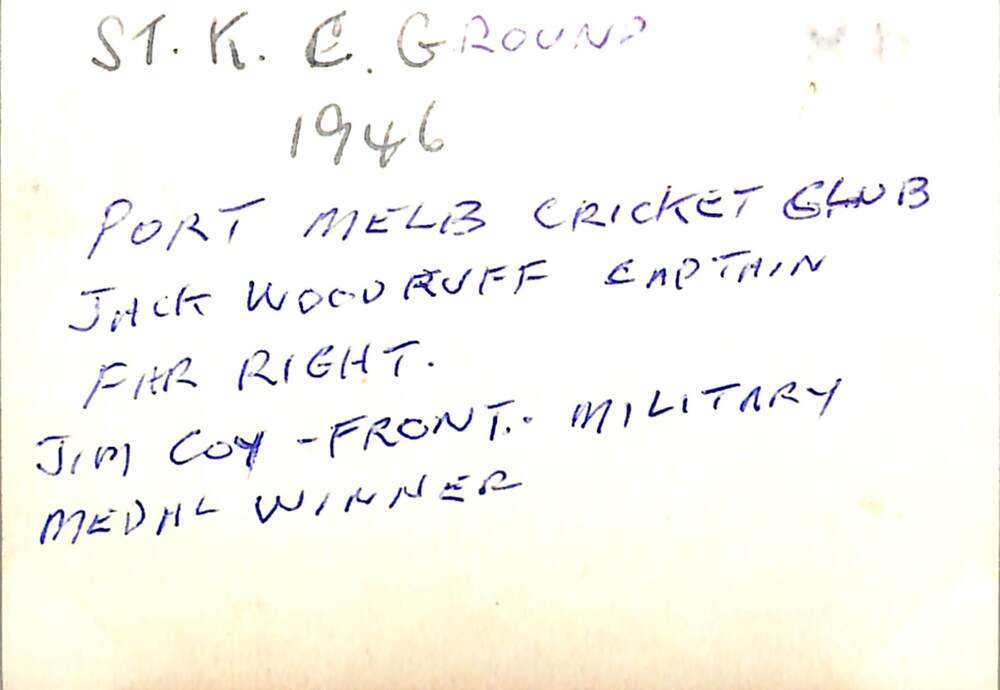 ST. K. C. GROUND
1946
PORT MELB CRICKET CLUB
JACK WOODRUFF CAPTAIN
FAR RIGHT.
JIM COY - FRONT. - MILITARY
MEDAL WINNER